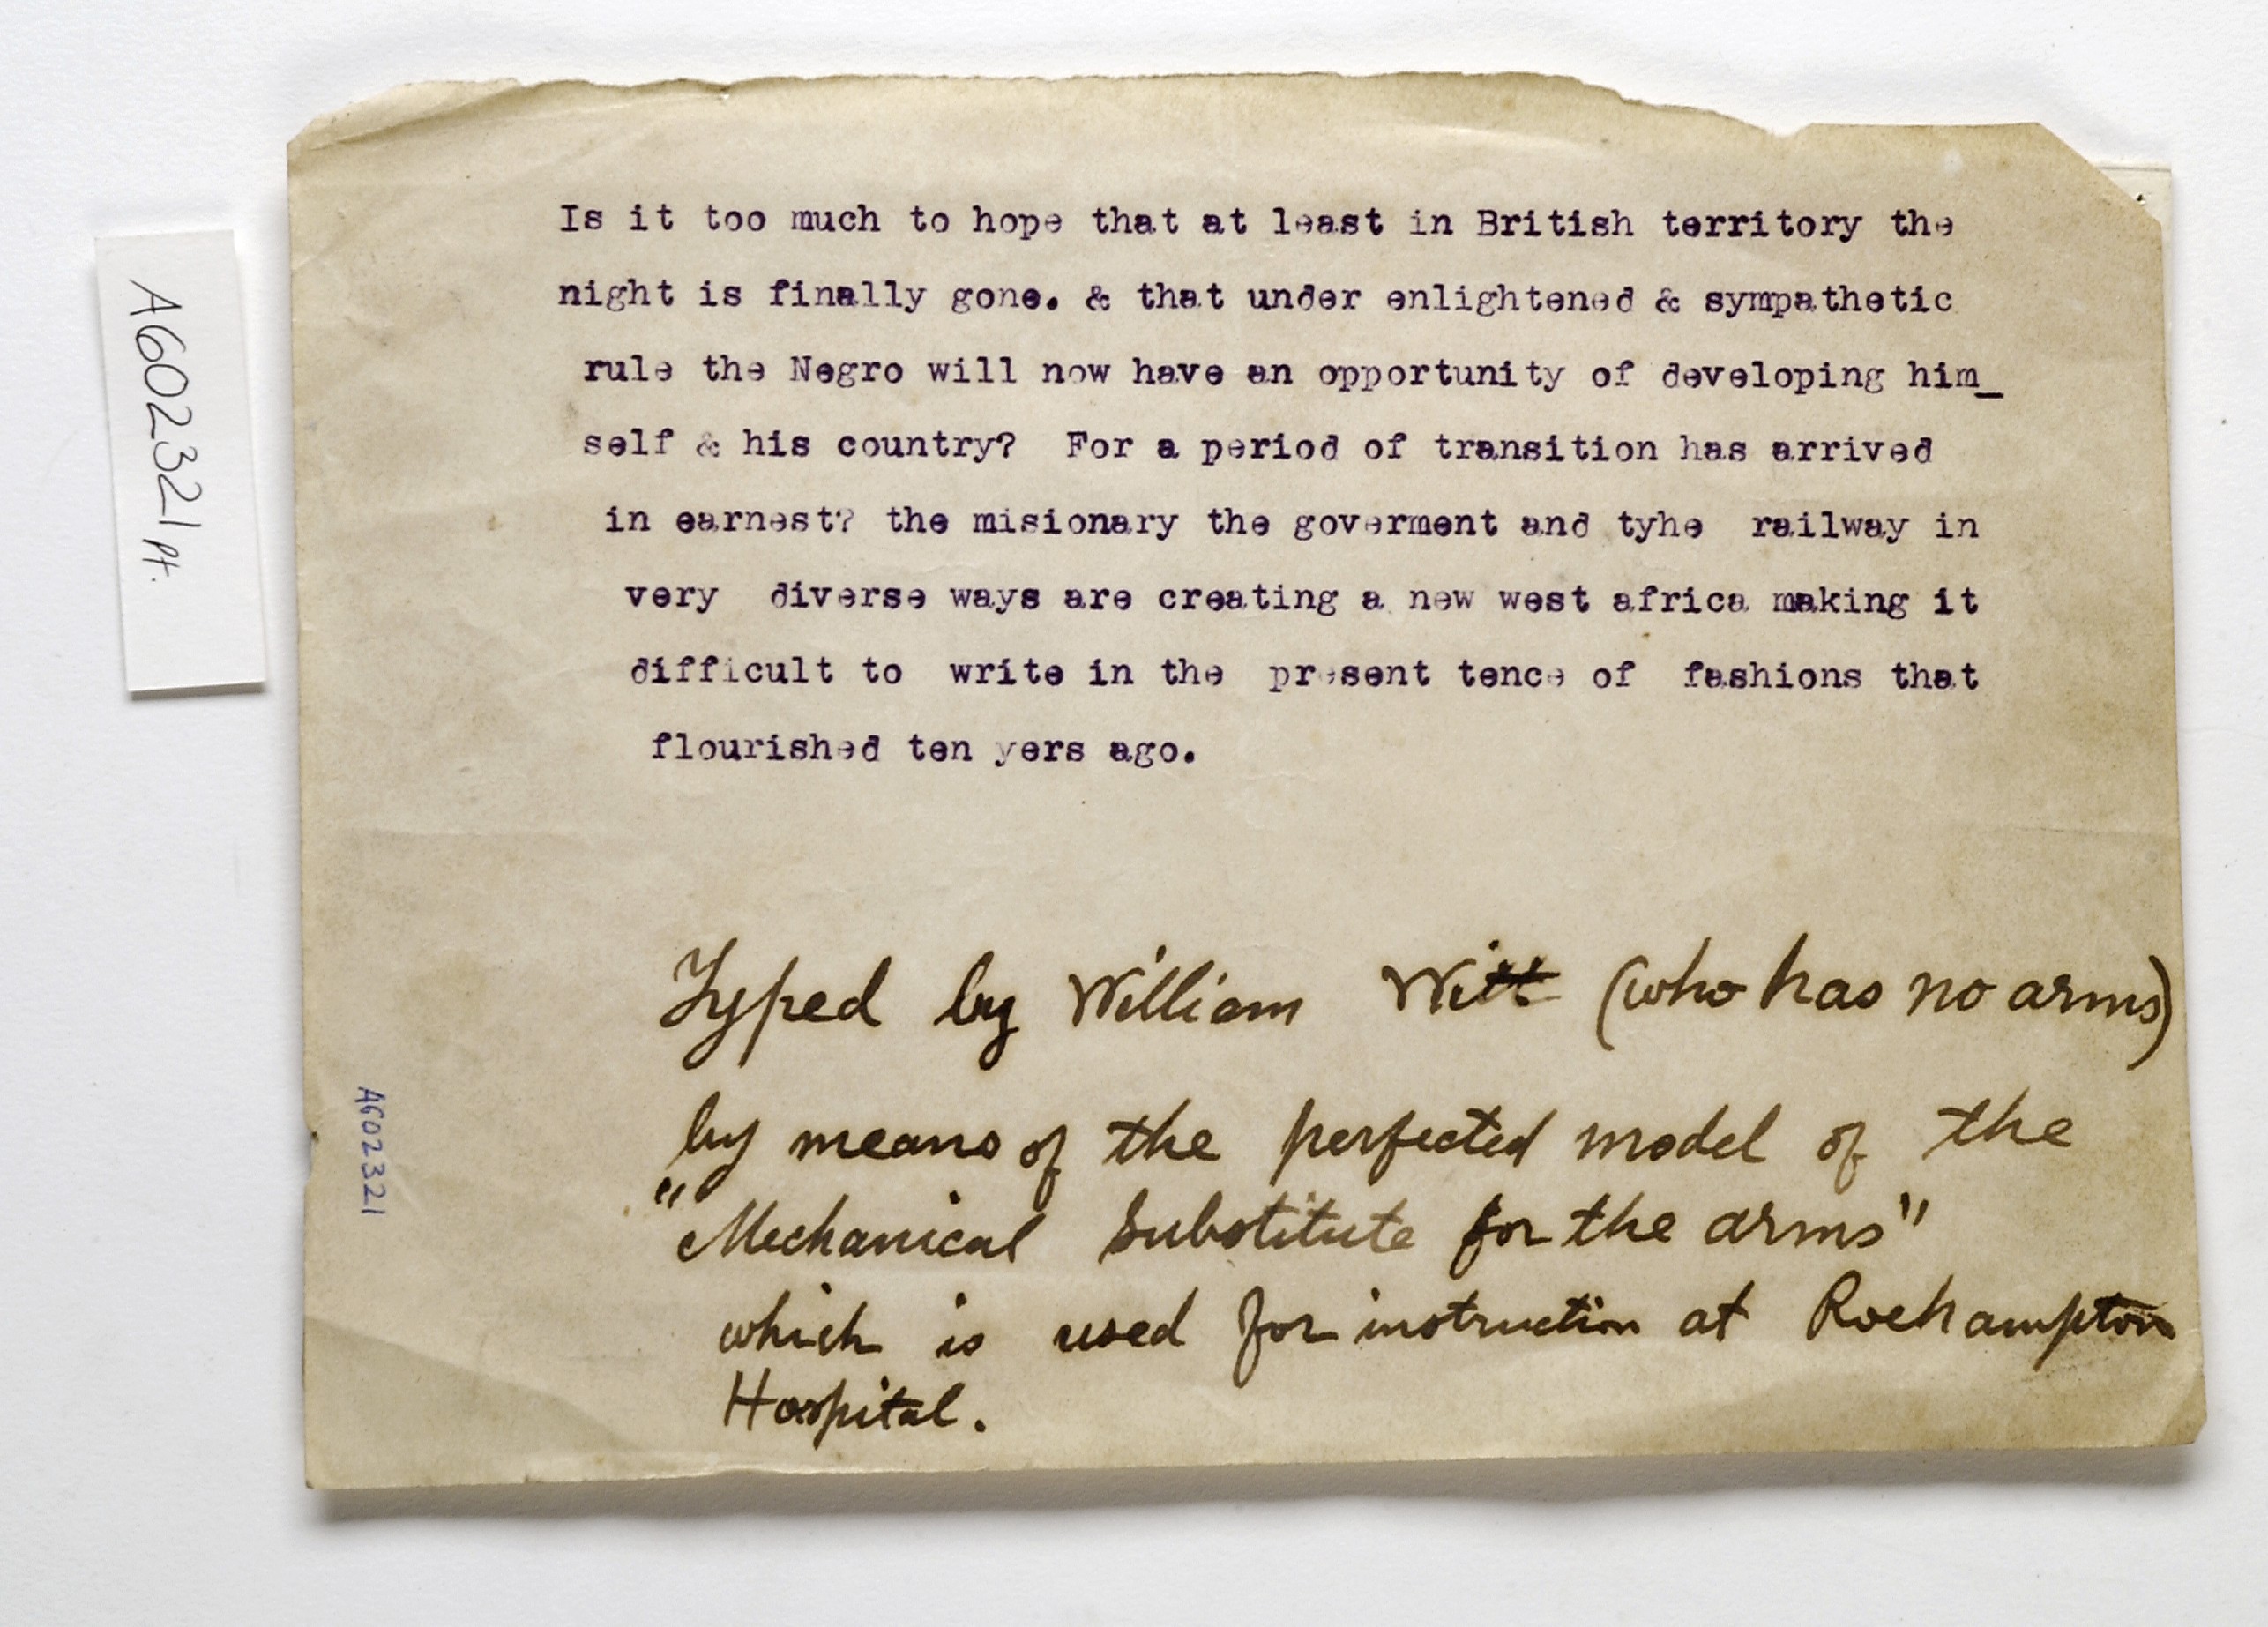 Is it too much to hope that at least in British territory the
night is finally gone. & that under enlightened & sympathetic
rule the Negro will now have an opportunity of developing him_
self & his country? For a period of transition has arrived
in earnest? the misionary the goverment and tyhe railway in
very diverse ways are creating a new west africa making it
difficult to write in the present tence of fashions that
flourished ten yers ago.
Typed by William Witt (who has no arms)
by means of the perfected model of the
"Mechanical Substitute for the arms"
which is used for instruction at Roehampton
Hospital.
A602321 pt.
A602321